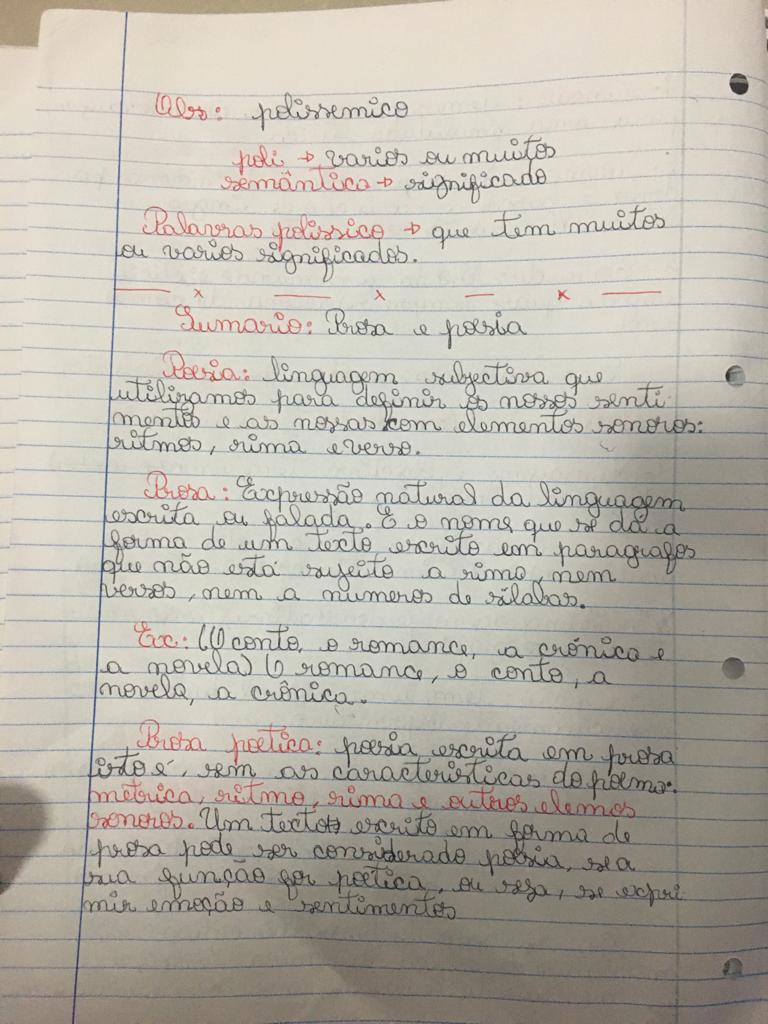 Obs: polissemico
poli → varios ou muitos
semântica → significado
Palavras polissico → que tem muitos
ou varios significados.
x x x
Sumario: Prosa e poesia
Poesia: linguagem subjectiva que
utilizamos para definir os nossos senti
mentos e as nossas com elementos sonoros:
ritmos, rima e verso.
Prosa: Expressão natural da linguagem
escrita ou falada. É o nome que se dá a
forma de um texto escrito em paragrafos
que não está sujeito a rimo, nem
versos, nem a numeros de silabas.
Ex: (O conto, o romance, a crónica e
a novela) O romance, o conto, a
novela, a crônica.
Prosa poetica: poesia escrita em prosa
isto é, sem as caracteristicas do poema:
métrica, ritmo, rima e outros elemos
sonoros. Um texto escrito em forma de
prosa pode ser considerado poesia, se a
sua função for poetica, ou seja, se expri
mir emoção e sentimentos